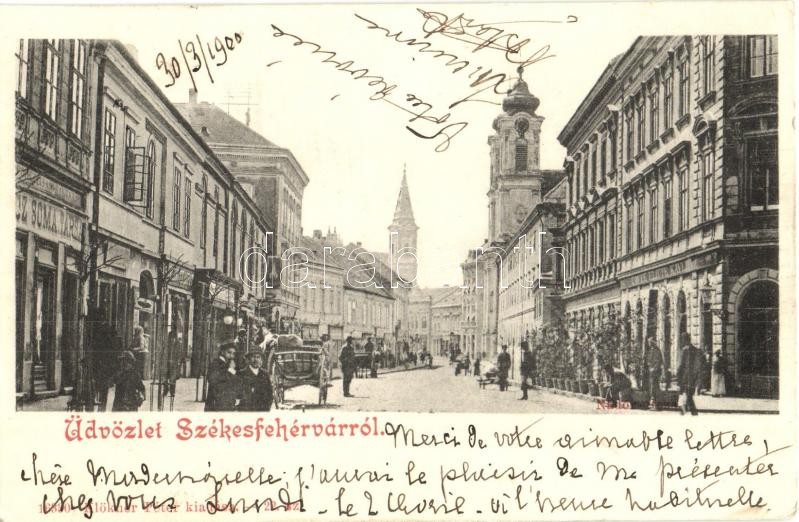 30/3/1900
Votre dévouée
SZ SOMA
darabanth
Üdvözlet Székesfehérvárról.
Merci de votre aimable lettre,
chère Mademoiselle, j'aurai le plaisir de me présenter
chez vous Lundi - le 2 Avril - à l'heure habituelle.
Klökner Péter kiadása.